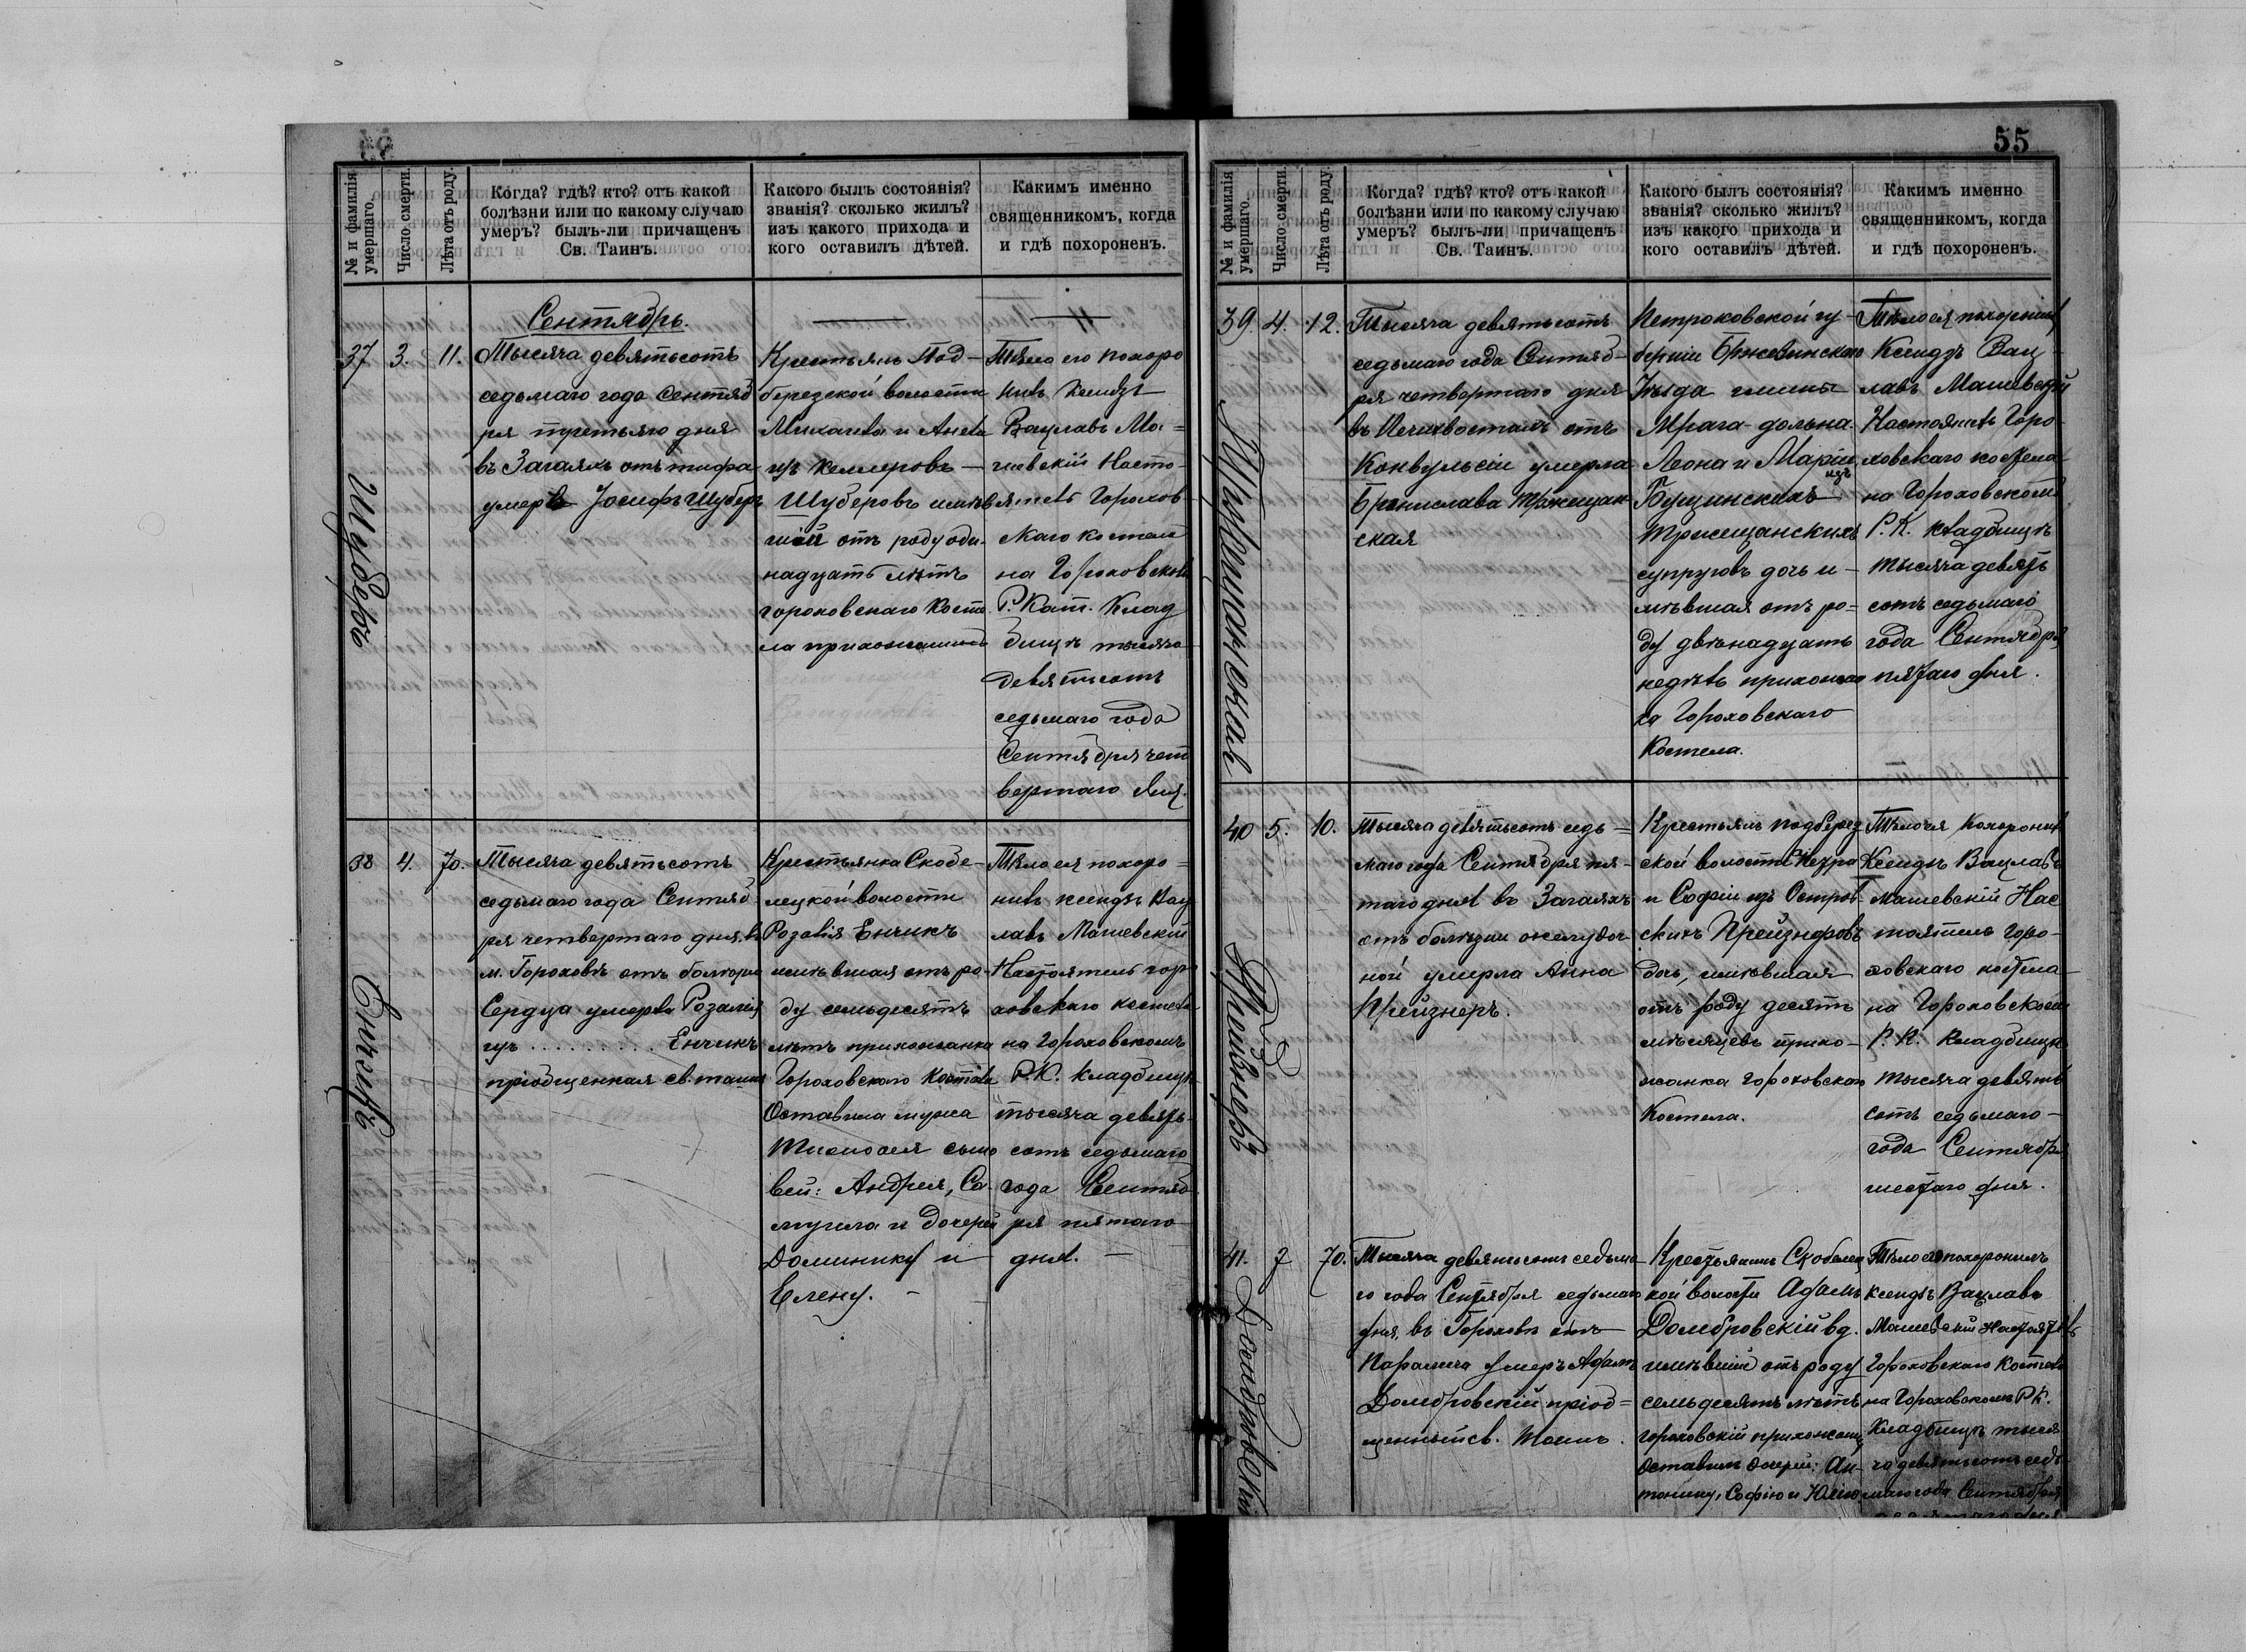 55
№ и фамилія умершаго.
Число смерти.
Лѣта отъ роду.
Когда? гдѣ? кто? отъ какой
болѣзни или по какому случаю
умеръ? былъ-ли причащенъ
Св. Таинъ.
Какого былъ состоянія?
званія? сколько жилъ?
изъ какого прихода и
кого оставилъ дѣтей.
Какимъ именно
священникомъ, когда
и гдѣ похороненъ.
Сентябрь.
37
3.
11.
Шуберъ
Тысяча девятьсотъ
седьмаго года Сентяб
ря третьяго дня
въ Загаяхъ отъ тифа
умеръ Іосифъ Шуберъ
Крестьянъ Под-
березской волости
Михаила и Анели
изъ Келлеровъ
Шуберовъ имѣв
шій отъ роду оди-
надцать лѣтъ
гороховскаго косте
ла прихожанинъ
Тѣло его похоро
нилъ ксендзъ
Вацлавъ Ма=
шевскій Насто-
ятель Горохов
скаго костела
на Гороховскомъ
Р. Кат. Клад
бищѣ тысяча
девятьсотъ
седьмаго года
Сентября чет
вертаго дня.
38
4.
70.
Енчикъ
Тысяча девятьсотъ
седьмаго года Сентяб
ря четвертаго дня въ
м. Гороховѣ отъ болѣзни
Сердца умерла Розалія
изъ ......... Енчикъ
пріобщенная св. таинъ
Крестьянка Скобе-
лецкой волости
Розалія Енчикъ
имѣвшая отъ ро-
ду семьдесятъ
лѣтъ прихожанка
Гороховскаго Костела
Оставила мужа
сыно
вей: Андрея, Са-
муила и дочерей
Доминику и
Елену.
Тѣло ея похоро=
нилъ ксендзъ Вац
лавъ Машевскій
Настоятель горо
ховскаго костела
на Гороховскомъ
Р.К. кладбищѣ
тысяча девять-
сотъ седьмаго
года Сентяб
ря пятаго
дня.
№ и фамилія умершаго.
Число смерти.
Лѣта отъ роду.
Когда? гдѣ? кто? отъ какой
болѣзни или по какому случаю
умеръ? былъ-ли причащенъ
Св. Таинъ.
Какого былъ состоянія?
званія? сколько жилъ?
изъ какого прихода и
кого оставилъ дѣтей.
Какимъ именно
священникомъ, когда
и гдѣ похороненъ.
39
4.
12.
Тысяча девятьсотъ
седьмаго года Сентяб-
ря четвертаго дня
въ отъ
Конвульсіи умерла
Бронислава Тржещан
ская
Петроковской гу-
берніи Бржезинскаго
гмины
Мрага-дольна
Леона и Маріи изъ
Бущинскихъ
Тржещанскихъ
супруговъ дочь и-
мѣвшая отъ ро=
ду двѣнадцать
недѣль прихожан
ка Гороховскаго
Костела.
Тѣло ея похоронилъ
Ксендзъ Вац-
лавъ Машевскій
Настоятель Горо-
ховскаго костела
на Гороховскомъ
Р. К. кладбищѣ
тысяча девять
сотъ седьмаго
года Сентября
пятаго дня.
40
5.
10.
Прейзнеръ
Тысяча девятьсотъ седь=
маго года Сентября пя-
таго дня въ Загаяхъ
отъ болѣзни желудоч
ной умерла Анна
Прейзнеръ.
Крестьянъ подберез
ской волости Петра
и Софіи изъ Остров-
скихъ Прейзнеровъ
дочь, имѣвшая
отъ роду десять
мѣсяцевъ прихо-
жанка гороховскаго
Костела.
Тѣло ея похоронилъ
Ксендзъ Вацлавъ
Машевскій Нас
тоятель Горо-
ховскаго костела
на Гороховскомъ
Р. К. кладбищѣ
тысяча девять
сотъ седьмаго
года Сентября
шестаго дня.
41.
7
70.
Домбровскій
Тысяча девятьсотъ седьма
го года Сентября седьмаго
дня, въ Гороховѣ отъ
Паралича умеръ Адамъ
Домбровскій пріоб=
щенный св. Таинъ.
Крестьянинъ Скобелец
кой волости Адамъ
Домбровскій вд.
имѣвшій отъ роду
семьдесятъ лѣтъ
гороховскій прихожанинъ
Оставилъ дочерей: Ан-
тонину, Софію и Юлію
Тѣло его похоронилъ
ксендзъ Вацлавъ
Машевскій Настоятель
Гороховскаго Костела
на Гороховскомъ Р.К.
Кладбищѣ тыся
ча девятьсотъ седь
маго года Сентября